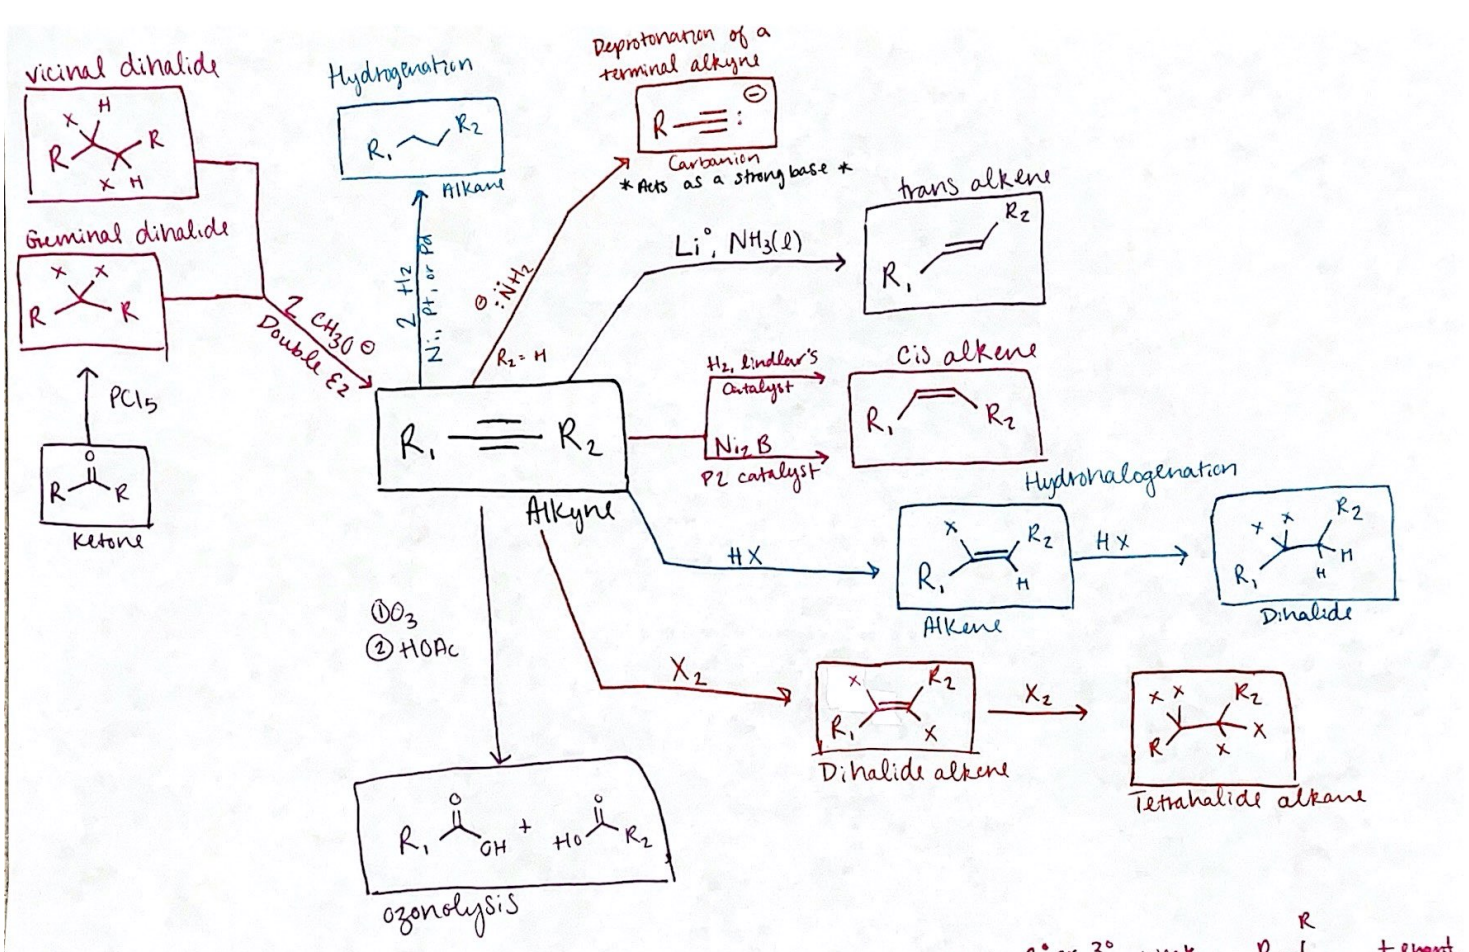 vicinal dihalide
X
H
R
R
X
H
Geminal dihalide
X
X
R
R
PCl5
O
R
R
Ketone
2 CH3O ⊖
Double E2
Hydrogenation
R1
R2
Alkane
2 H2
Ni, Pt, or Pd
Deprotonation of a
terminal alkyne
⊖
R ≡ :
Carbanion
* Acts as a strong base *
⊖ :N̈H2
R2 = H
Li°, NH3(l)
trans alkene
R2
R1
H2, lindlar's
Catalyst
Ni2B
P2 catalyst
Cis alkene
R1
R2
R1 ≡ R2
Alkyne
Hydrohalogenation
HX
X
R2
R1
H
Alkene
HX
X
X
R2
R1
H
H
Dihalide
X2
X
R2
R1
X
Dihalide alkene
X2
X
X
R2
R
X
X
Tetrahalide alkane
① O3
② HOAc
O
R1
OH
+
O
HO
R2
ozonolysis
R